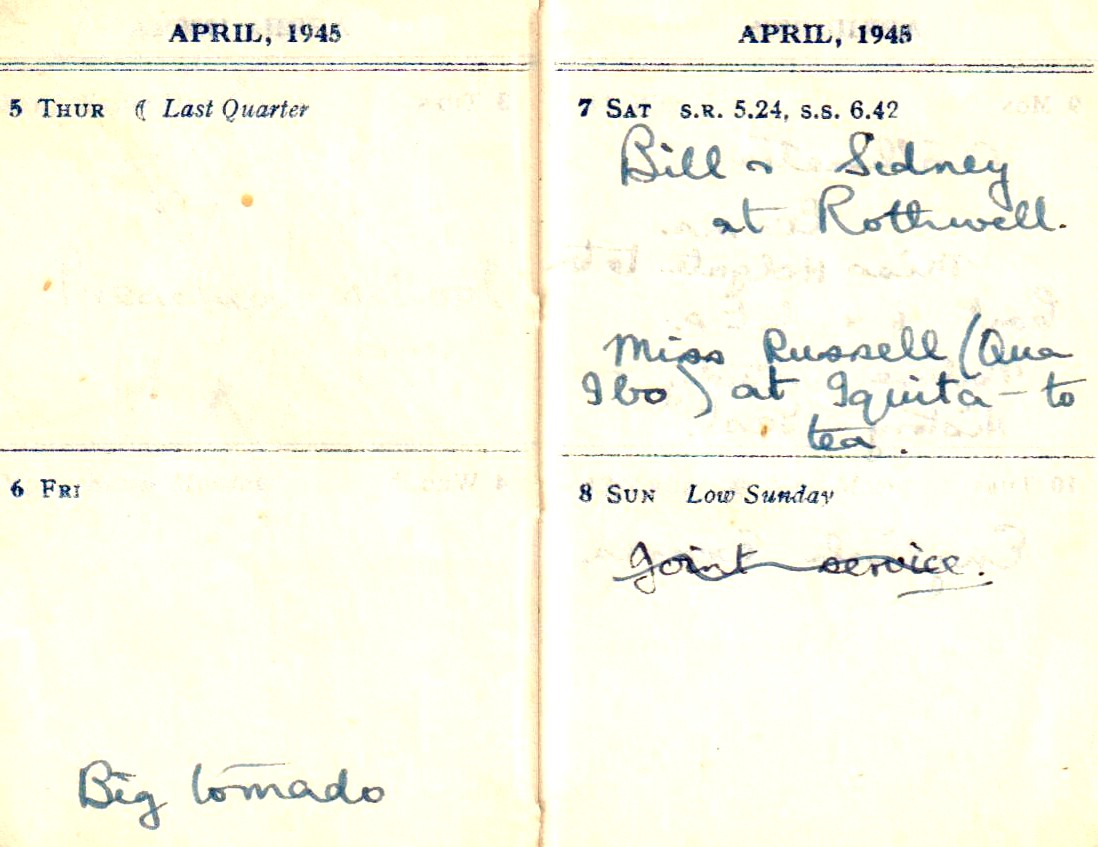 APRIL, 1945
5 THUR ☾ Last Quarter
6 FRI
Big tornado
APRIL, 1945
7 SAT S.R. 5.24, S.S. 6.42
Bill & Sidney
at Rothwell.
Miss Russell (Qua
Ibo) at Iquita – to
tea.
8 SUN Low Sunday
Joint service.